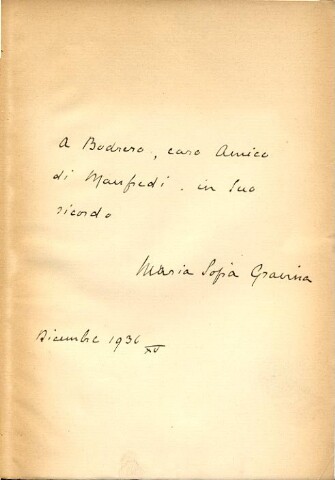 A Bodrero, caro Amico
di Manfredi. in Suo
ricordo
Maria Sofia Gravina
Dicembre 1936
XV